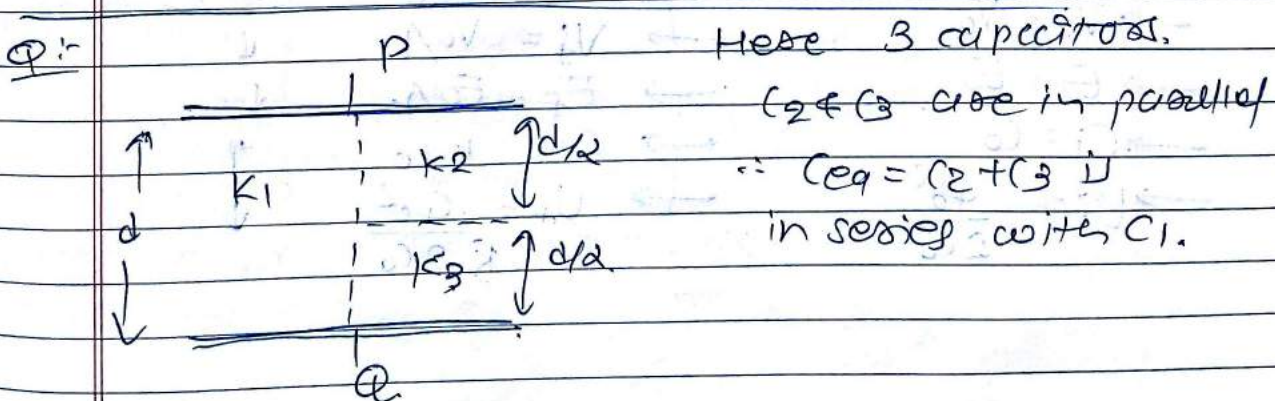 Q:-
P
Here 3 capacitors.
C2 & C3 are in parallel
∴ Ceq = C2 + C3 is
in series with C1.
K1
K2
d/2
d
K3
d/2
Q